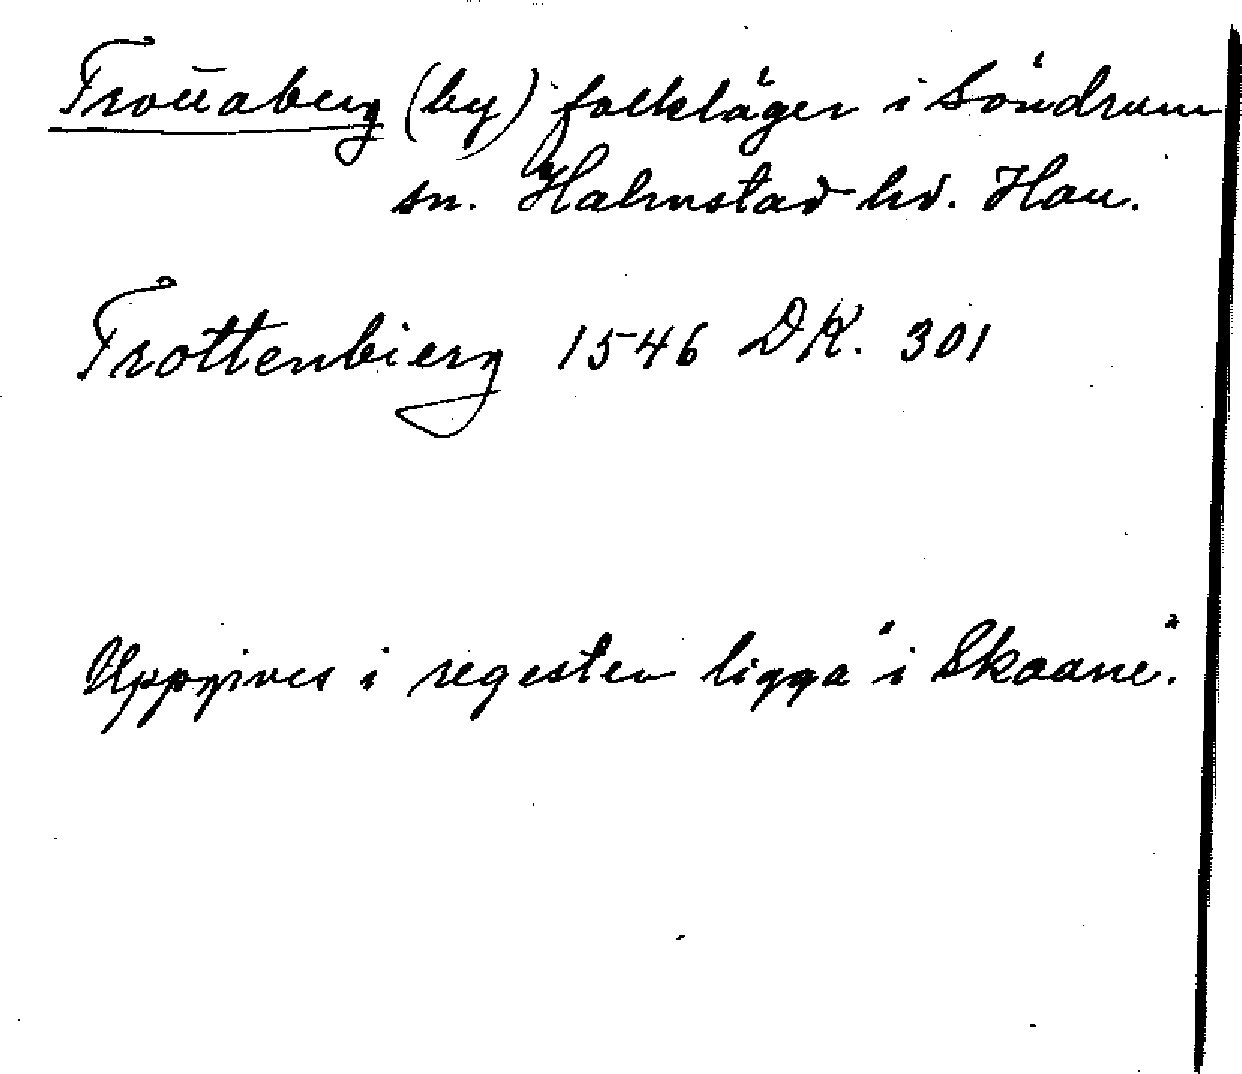 Trottaberg (by) folkläger i Söndrum
sn. Halmstad hd. Hall.
Trottenbierg 1546 DK. 301
Uppgives i regesten ligga "i Skaane".